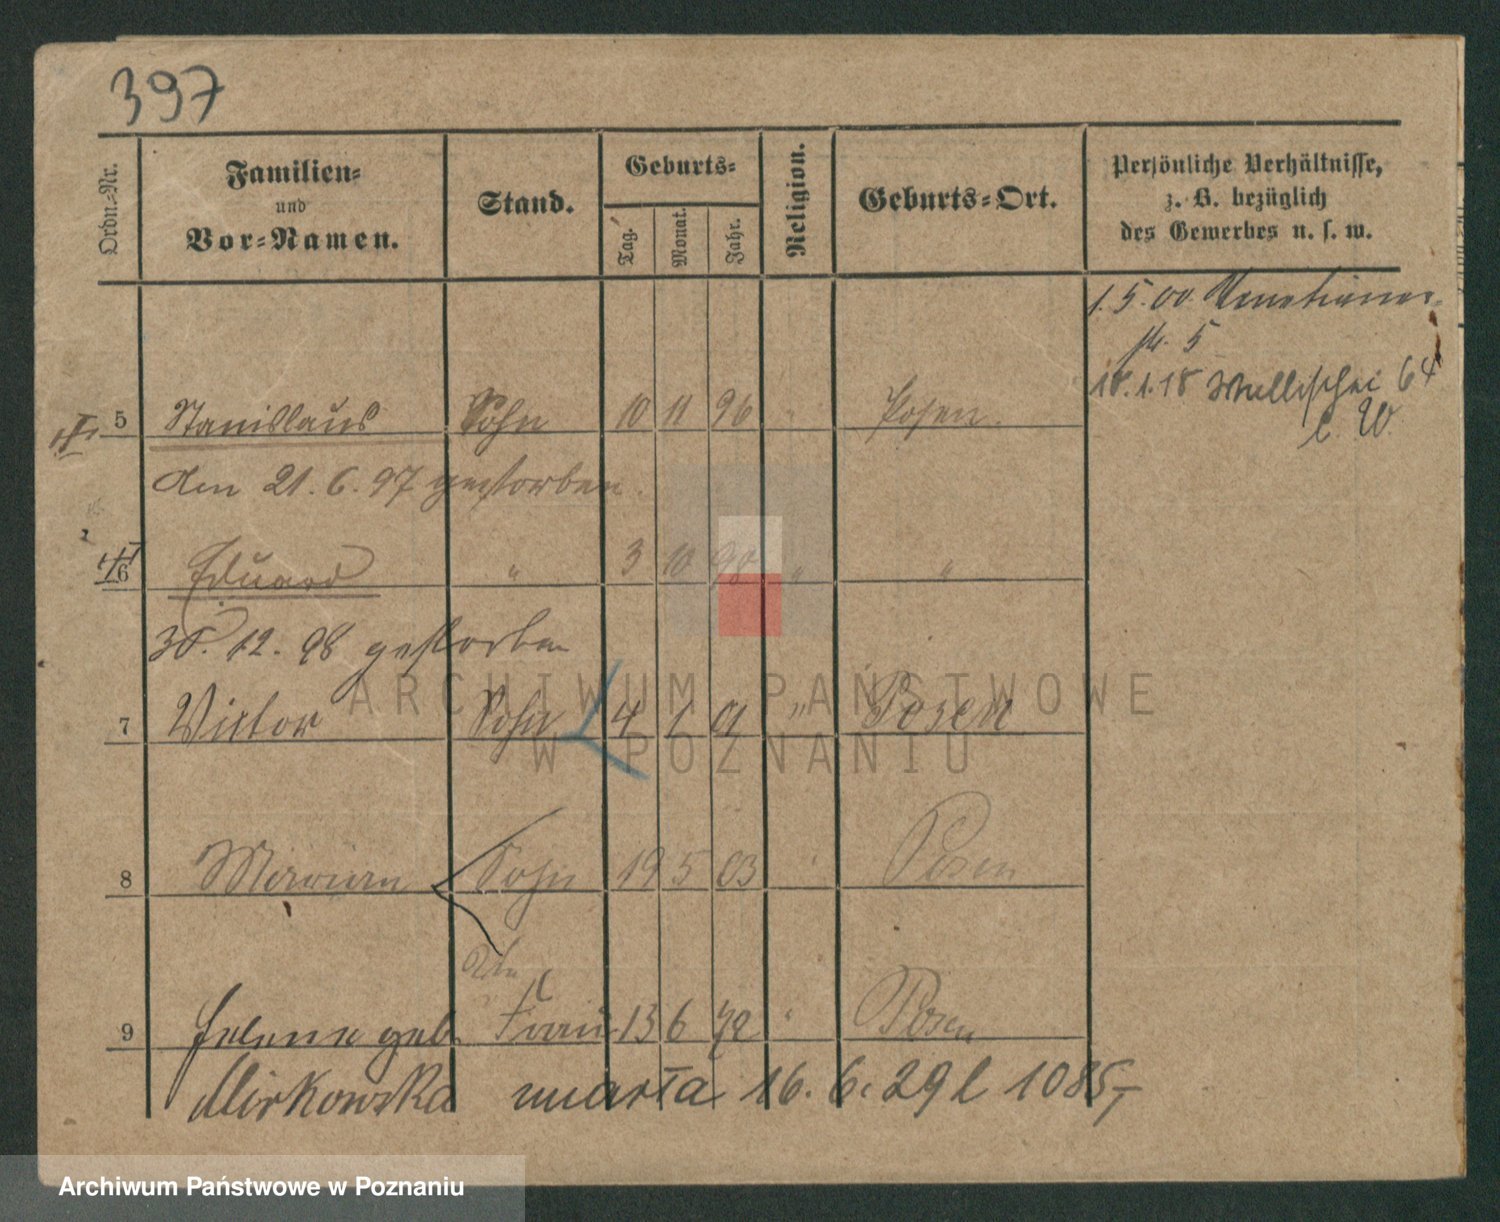 397
Ordn.-Nr.
Familien-
und
Vor-Namen.
Stand.
Geburts-
Tag.
Monat.
Jahr.
Religion.
Geburts-Ort.
Persönliche Verhältnisse,
z. B. bezüglich
des Gewerbes u. s. w.
1. 5. 00 Venetianer-
str. 5
18. 1. 18 Wallischei 64
5 Stanislaus Sohn 10 11 96 " Posen.
am 21. 6. 97 gestorben.
6 Eduard " 3 10 98 " "
30. 12. 98 gestorben
7 Victor Sohn 4 1 01 " Posen
8 Maryan Sohn 19 5 03 " Posen
9 Helene geb. Frau 13 6 72 " Posen
Mirkowska umarła 16. 6. 29 1085
ARCHIWUM PAŃSTWOWE
W POZNANIU
Archiwum Państwowe w Poznaniu